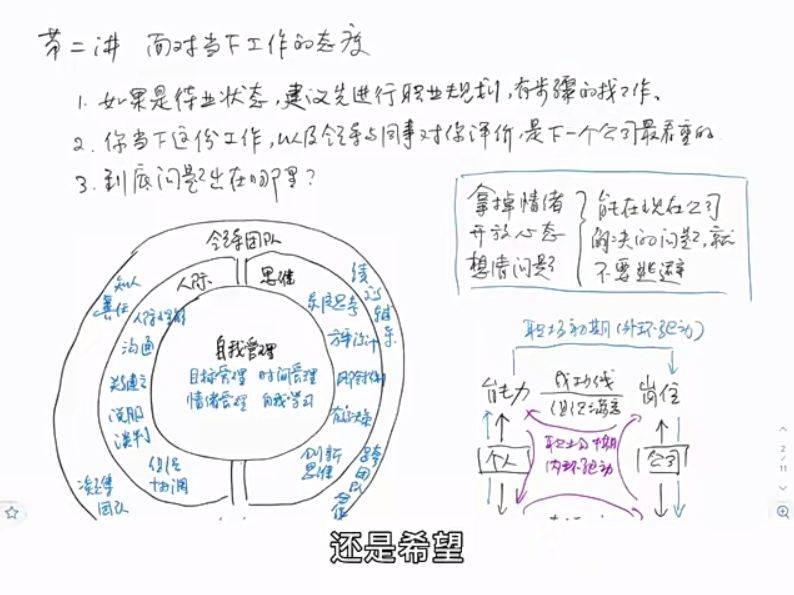 第二讲 面对当下工作的态度
1. 如果是待业状态，建议先进行职业规划，有步骤的找工作。
2. 你当下这份工作，以及领导与同事对你评价，是下一个公司最看重的.
3. 到底问题出在哪里？
拿掉情绪
开放心态
想清问题
能在现在公司
解决的问题，就
不要逃避
领导团队
人际
思维
知人
善任
人际理解
沟通
关系建立
说服
谈判
组织
协调
凝聚
团队
自我管理
目标管理 时间管理
情绪管理 自我学习
系统思考
方案设计
风险评估
有效决策
创新
思维
绩效辅导
跨团队合作
职场初期(外环驱动)
能力
成功线
组织满意
岗位
个人
职业中期
内环驱动
公司
2 / 11
还是希望